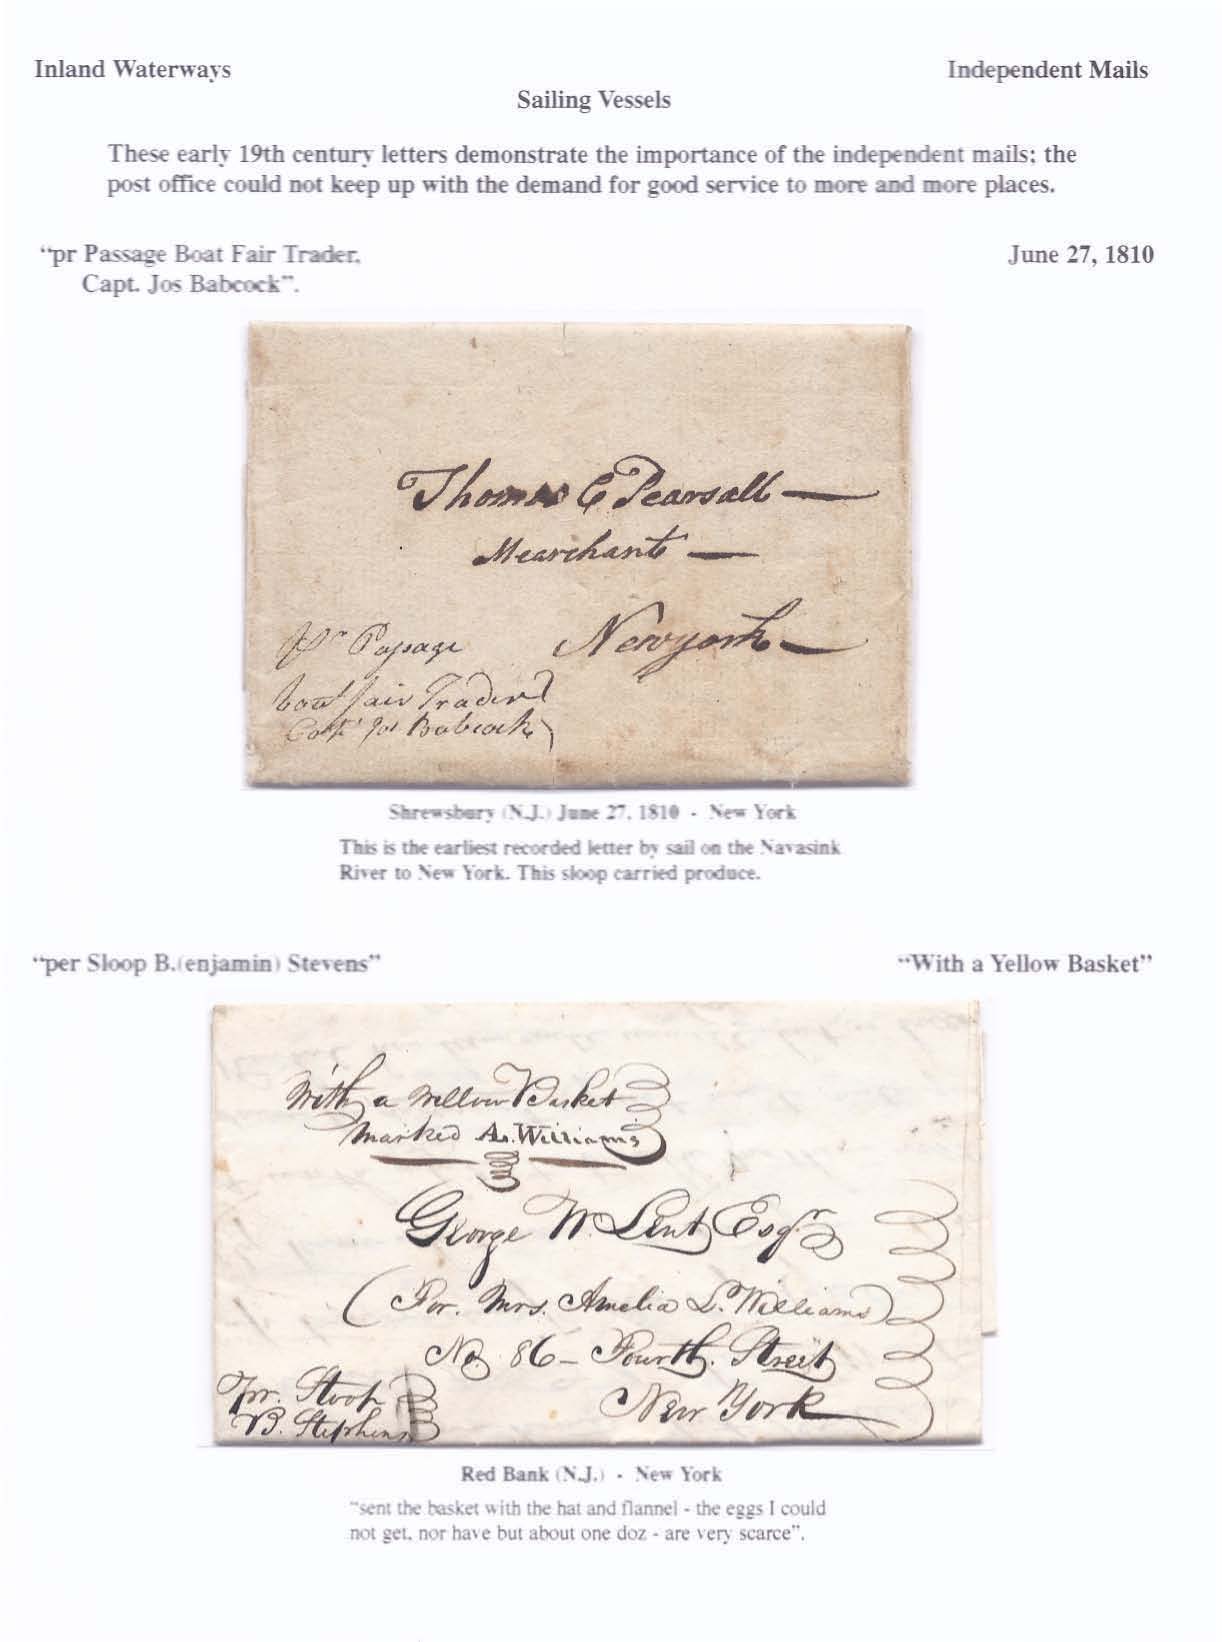 Inland Waterways
Independent Mails
Sailing Vessels
These early 19th century letters demonstrate the importance of the independent mails; the
post office could not keep up with the demand for good service to more and more places.
“pr Passage Boat Fair Trader,
June 27, 1810
Capt. Jos Babcock”.
Thomas C Pearsall —
Mearchant —
Newyork —
Pr Passage
boat fair Trader
Capt Jos Babcock
Shrewsbury (N.J.) June 27, 1810 - New York
This is the earliest recorded letter by sail on the Navasink
River to New York. This sloop carried produce.
“per Sloop B.(enjamin) Stevens”
“With a Yellow Basket”
With a yellow Basket
marked A. Williams
George W. Lent Esqr
(For. Mrs. Amelia L. Williams)
No. 86 – Fourth. Street
New York
pr. Sloop
B. Stephens
Red Bank (N.J.) - New York
“sent the basket with the hat and flannel - the eggs I could
not get, nor have but about one doz - are very scarce”.